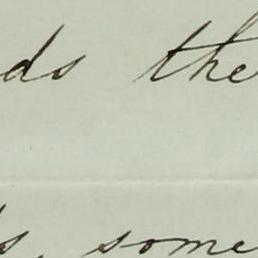 ds the
s, some